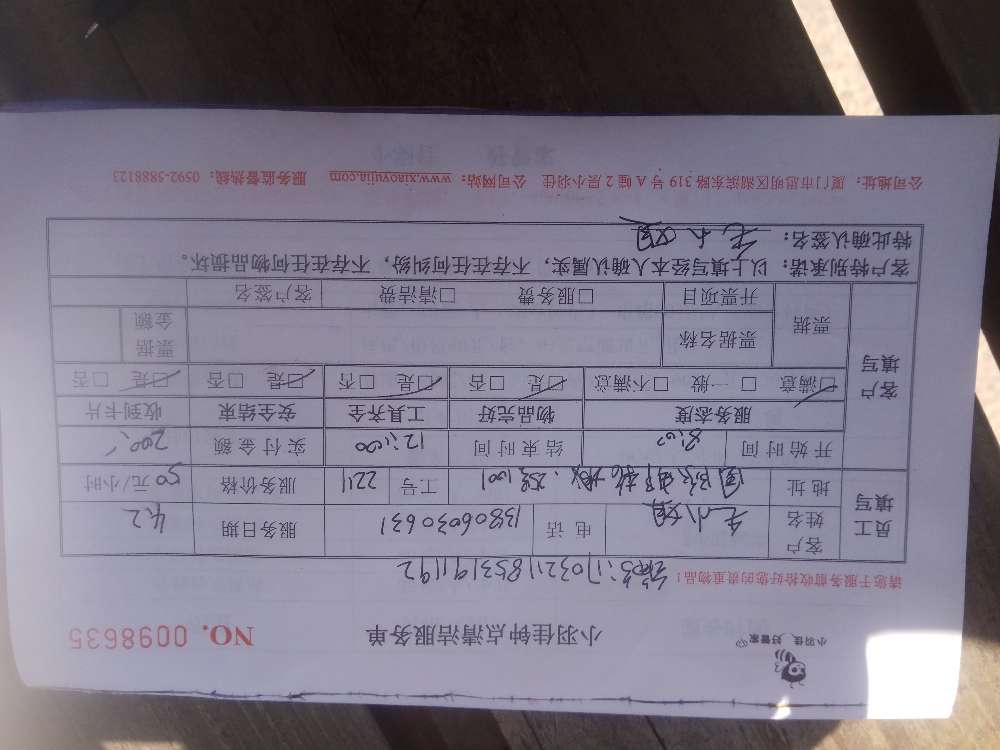 小羽佳 好管家
小羽佳钟点清洁服务单
NO. 0098635
请您于服务前收拾好您的贵重物品！
编号:1703211853191192
员工填写
客户姓名
电话 13806030631 服务日期 4.2
地址 1001 工号 2211 服务价格 50 元/小时
客户填写
开始时间 8:00 结束时间 12:00 实付金额 200
服务态度 物品完好 工具齐全 安全结束 收到卡片
☑满意 □一般 □不满意 ☑是 □否 ☑是 □否 ☑是 □否 ☑是 □否
票据 票据名称 票据金额
开票项目 □服务费 □清洁费 客户签名
客户特别承诺：以上填写经本人确认属实，不存在任何纠纷，不存在任何物品损坏。
特此确认签名：
公司地址：厦门市思明区湖滨东路 319 号 A 幢 2 层小羽佳 公司网站：www.xiaoyujia.com 服务监督热线：0592-5888123